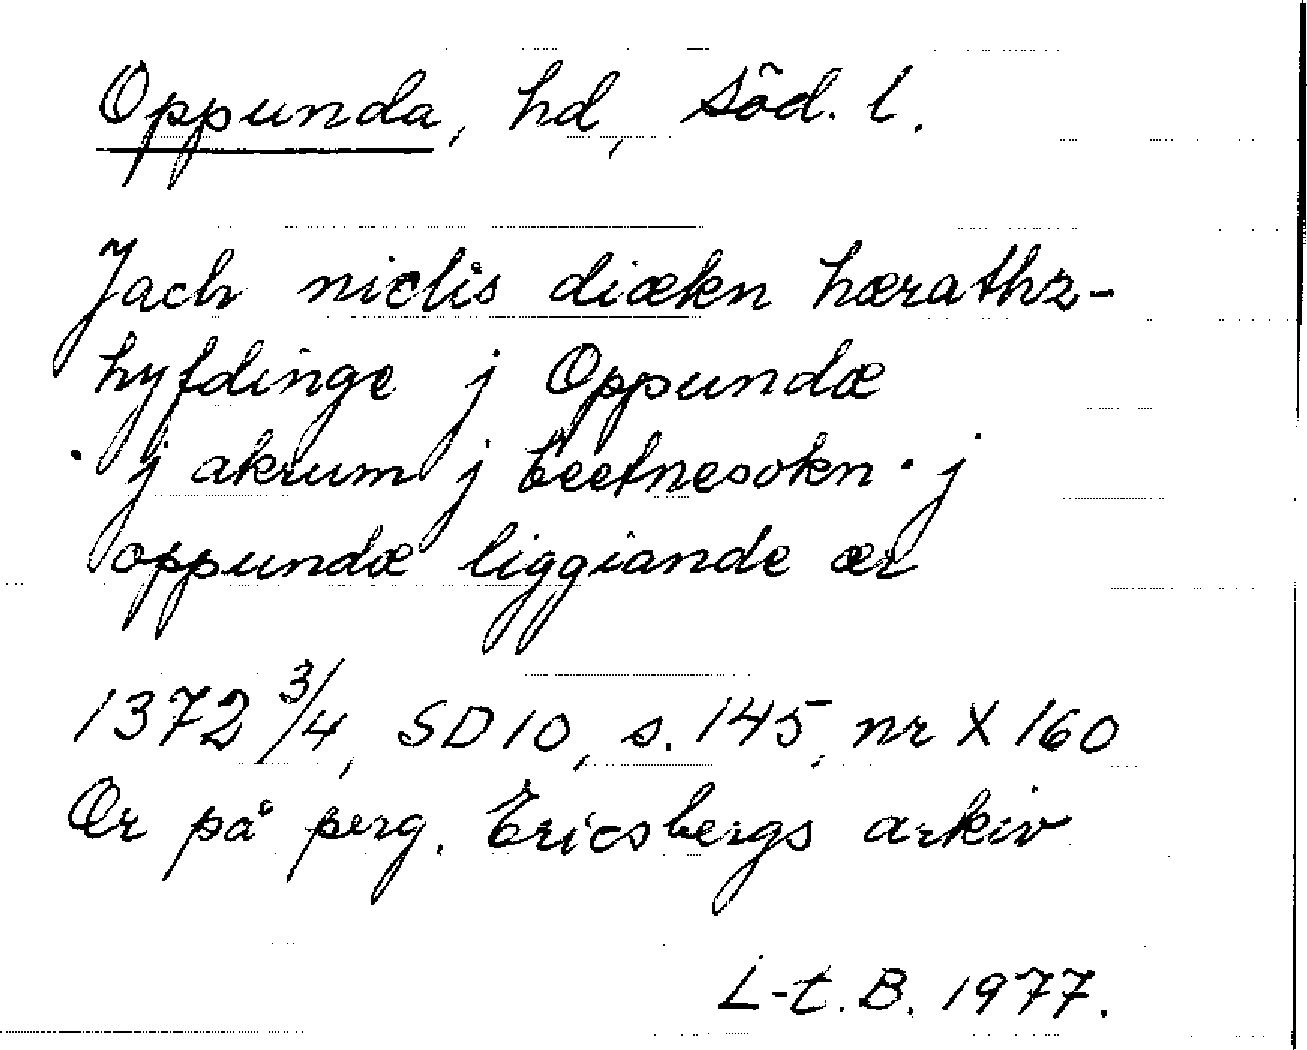 Oppunda, hd, Söd. l.
Jach niclis diækn hærathz-
hyfdinge j Oppundæ
· j akrum j beetnesokn · j
oppundæ liggiande ær
1372 3/4, SD 10, s. 145, nr X 160
Or på perg. Ericsbergs arkiv
L-t. B. 1977.